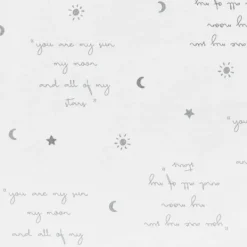 "you are my sun
my moon
and all of my
stars"
you are my sun
my moon
and all of my
"you are my sun
my moon
and all of my
"you are my sun
my moon
and all of my
stars"